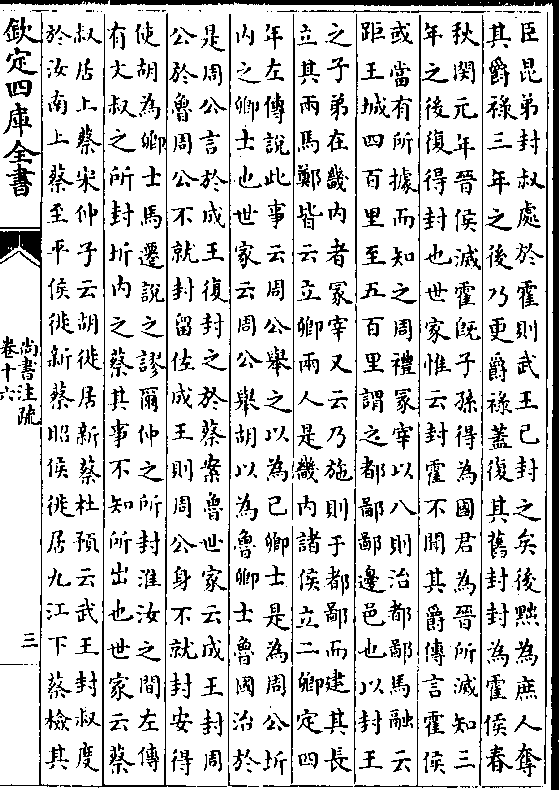 臣昆弟封叔處於霍則武王已封之矣後黜為庶人奪
其爵祿三年之後乃更爵祿蓋復其舊封封為霍侯春
秋閔元年晉侯滅霍既子孫得為國君為晉所滅知三
年之後復得封也世家惟云封霍不聞其爵傳言霍侯
或當有所據而知之周禮冢宰以八則治都鄙馬融云
距王城四百里至五百里謂之都鄙鄙邊邑也以封王
之子弟在畿内者冢宰又云乃施則于都鄙而建其長
立其兩馬鄭皆云立卿兩人是畿内諸侯立二卿定四
年左傳說此事云周公舉之以為己卿士是為周公圻
内之卿士也世家云周公舉胡以為魯卿士魯國治於
是周公言於成王復封之於蔡案魯世家云成王封周
公於魯周公不就封留佐成王則周公身不就封安得
使胡為卿士馬遷說之謬爾仲之所封淮汝之間左傳
有文叔之所封圻内之蔡其事不知所出也世家云蔡
叔居上蔡宋仲子云胡徙居新蔡杜預云武王封叔度
於汝南上蔡至平侯徙新蔡昭侯徙居九江下蔡檢其
欽定四庫全書
尚書注疏
卷十六
三